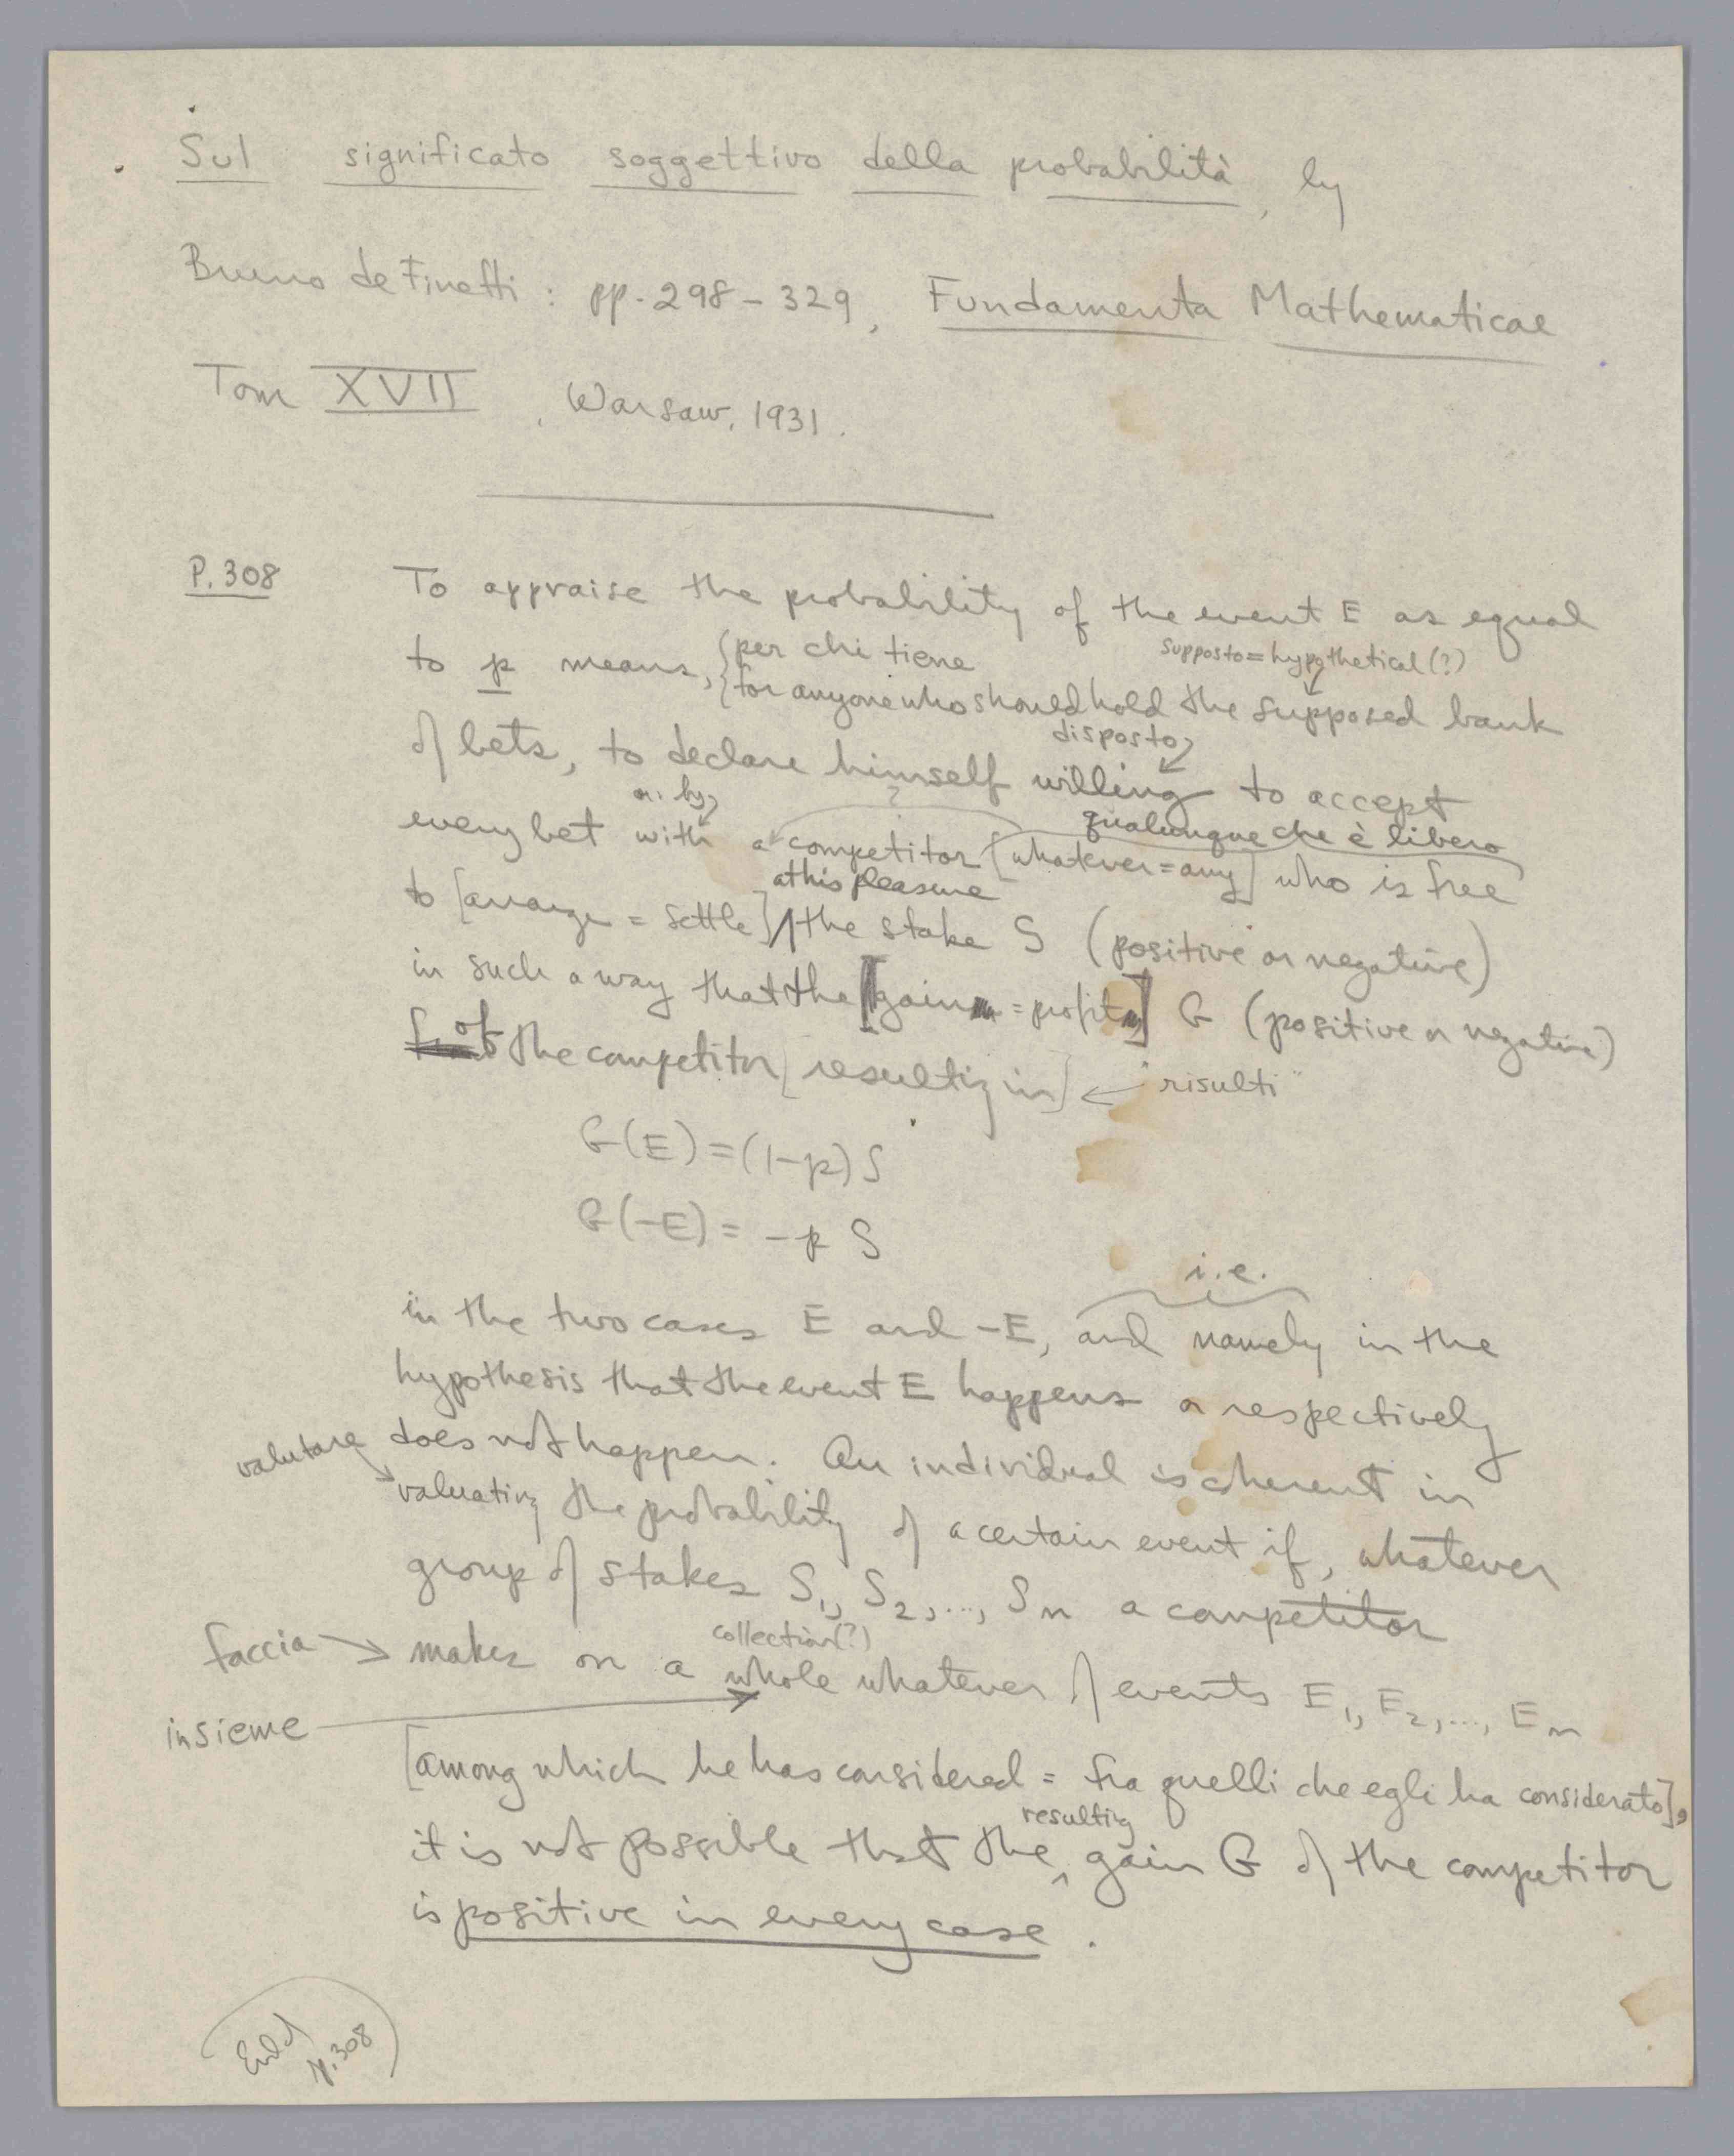 Sul significato soggettivo della probabilità, by
Bruno de Finetti: pp. 298-329, Fundamenta Mathematicae
Tom XVII, Warsaw, 1931.
P. 308
To appraise the probability of the event E as equal
supposto = hypothetical (?)
per chi tiene
to p means, {for anyone who should hold the supposed bank
disposto
of bets, to declare himself willing to accept
or: by
?
qualunque che è libero
every bet with a competitor [whatever = any] who is free
at his pleasure
to [arrange = settle] the stake S (positive or negative)
in such a way that the [gain = profit] G (positive or negative)
of the competitor [resulting in] ← "risulti"
G(E) = (1-p) S
G(-E) = -p S
i.e.
in the two cases E and -E, and namely in the
hypothesis that the event E happens or respectively
does not happen. An individual is coherent in
valutare
valuating the probability of a certain event if, whatever
group of stakes S1, S2, ..., Sn a competitor
collection (?)
faccia → makes on a whole whatever of events E1, E2, ..., En
insieme
[among which he has considered = fra quelli che egli ha considerato],
resulting
it is not possible that the gain G of the competitor
is positive in every case.
End of
p. 308